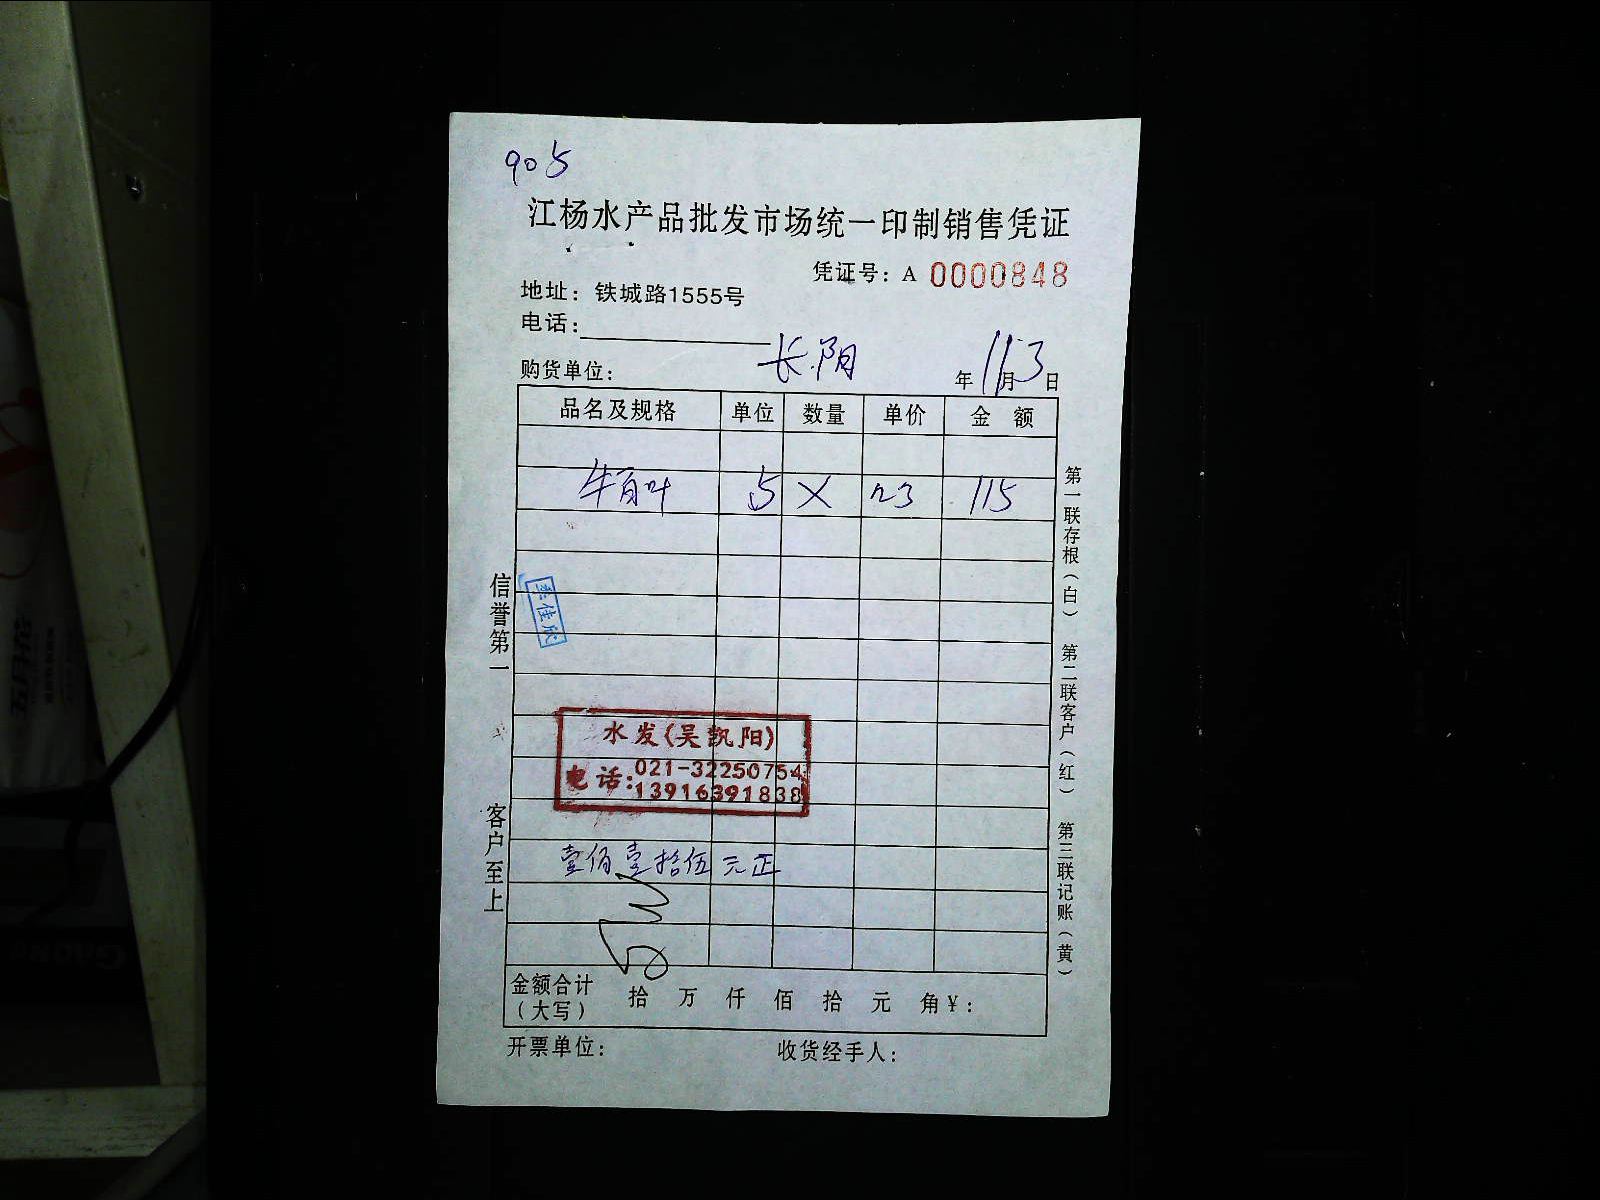 905
江杨水产品批发市场统一印制销售凭证
凭证号：A 0000848
地址：铁城路1555号
电话：
购货单位： 长阳 年 11月3日
品名及规格 单位 数量 单价 金 额
牛百叶 5 X 23 115
信誉第一
客户至上
李佳欣
水发(吴凯阳)
电话：021-32250754
13916391838
壹佰壹拾伍元正
金额合计
（大写） 拾 万 仟 佰 拾 元 角 ￥：
开票单位： 收货经手人：
第一联存根（白） 第二联客户（红） 第三联记账（黄）